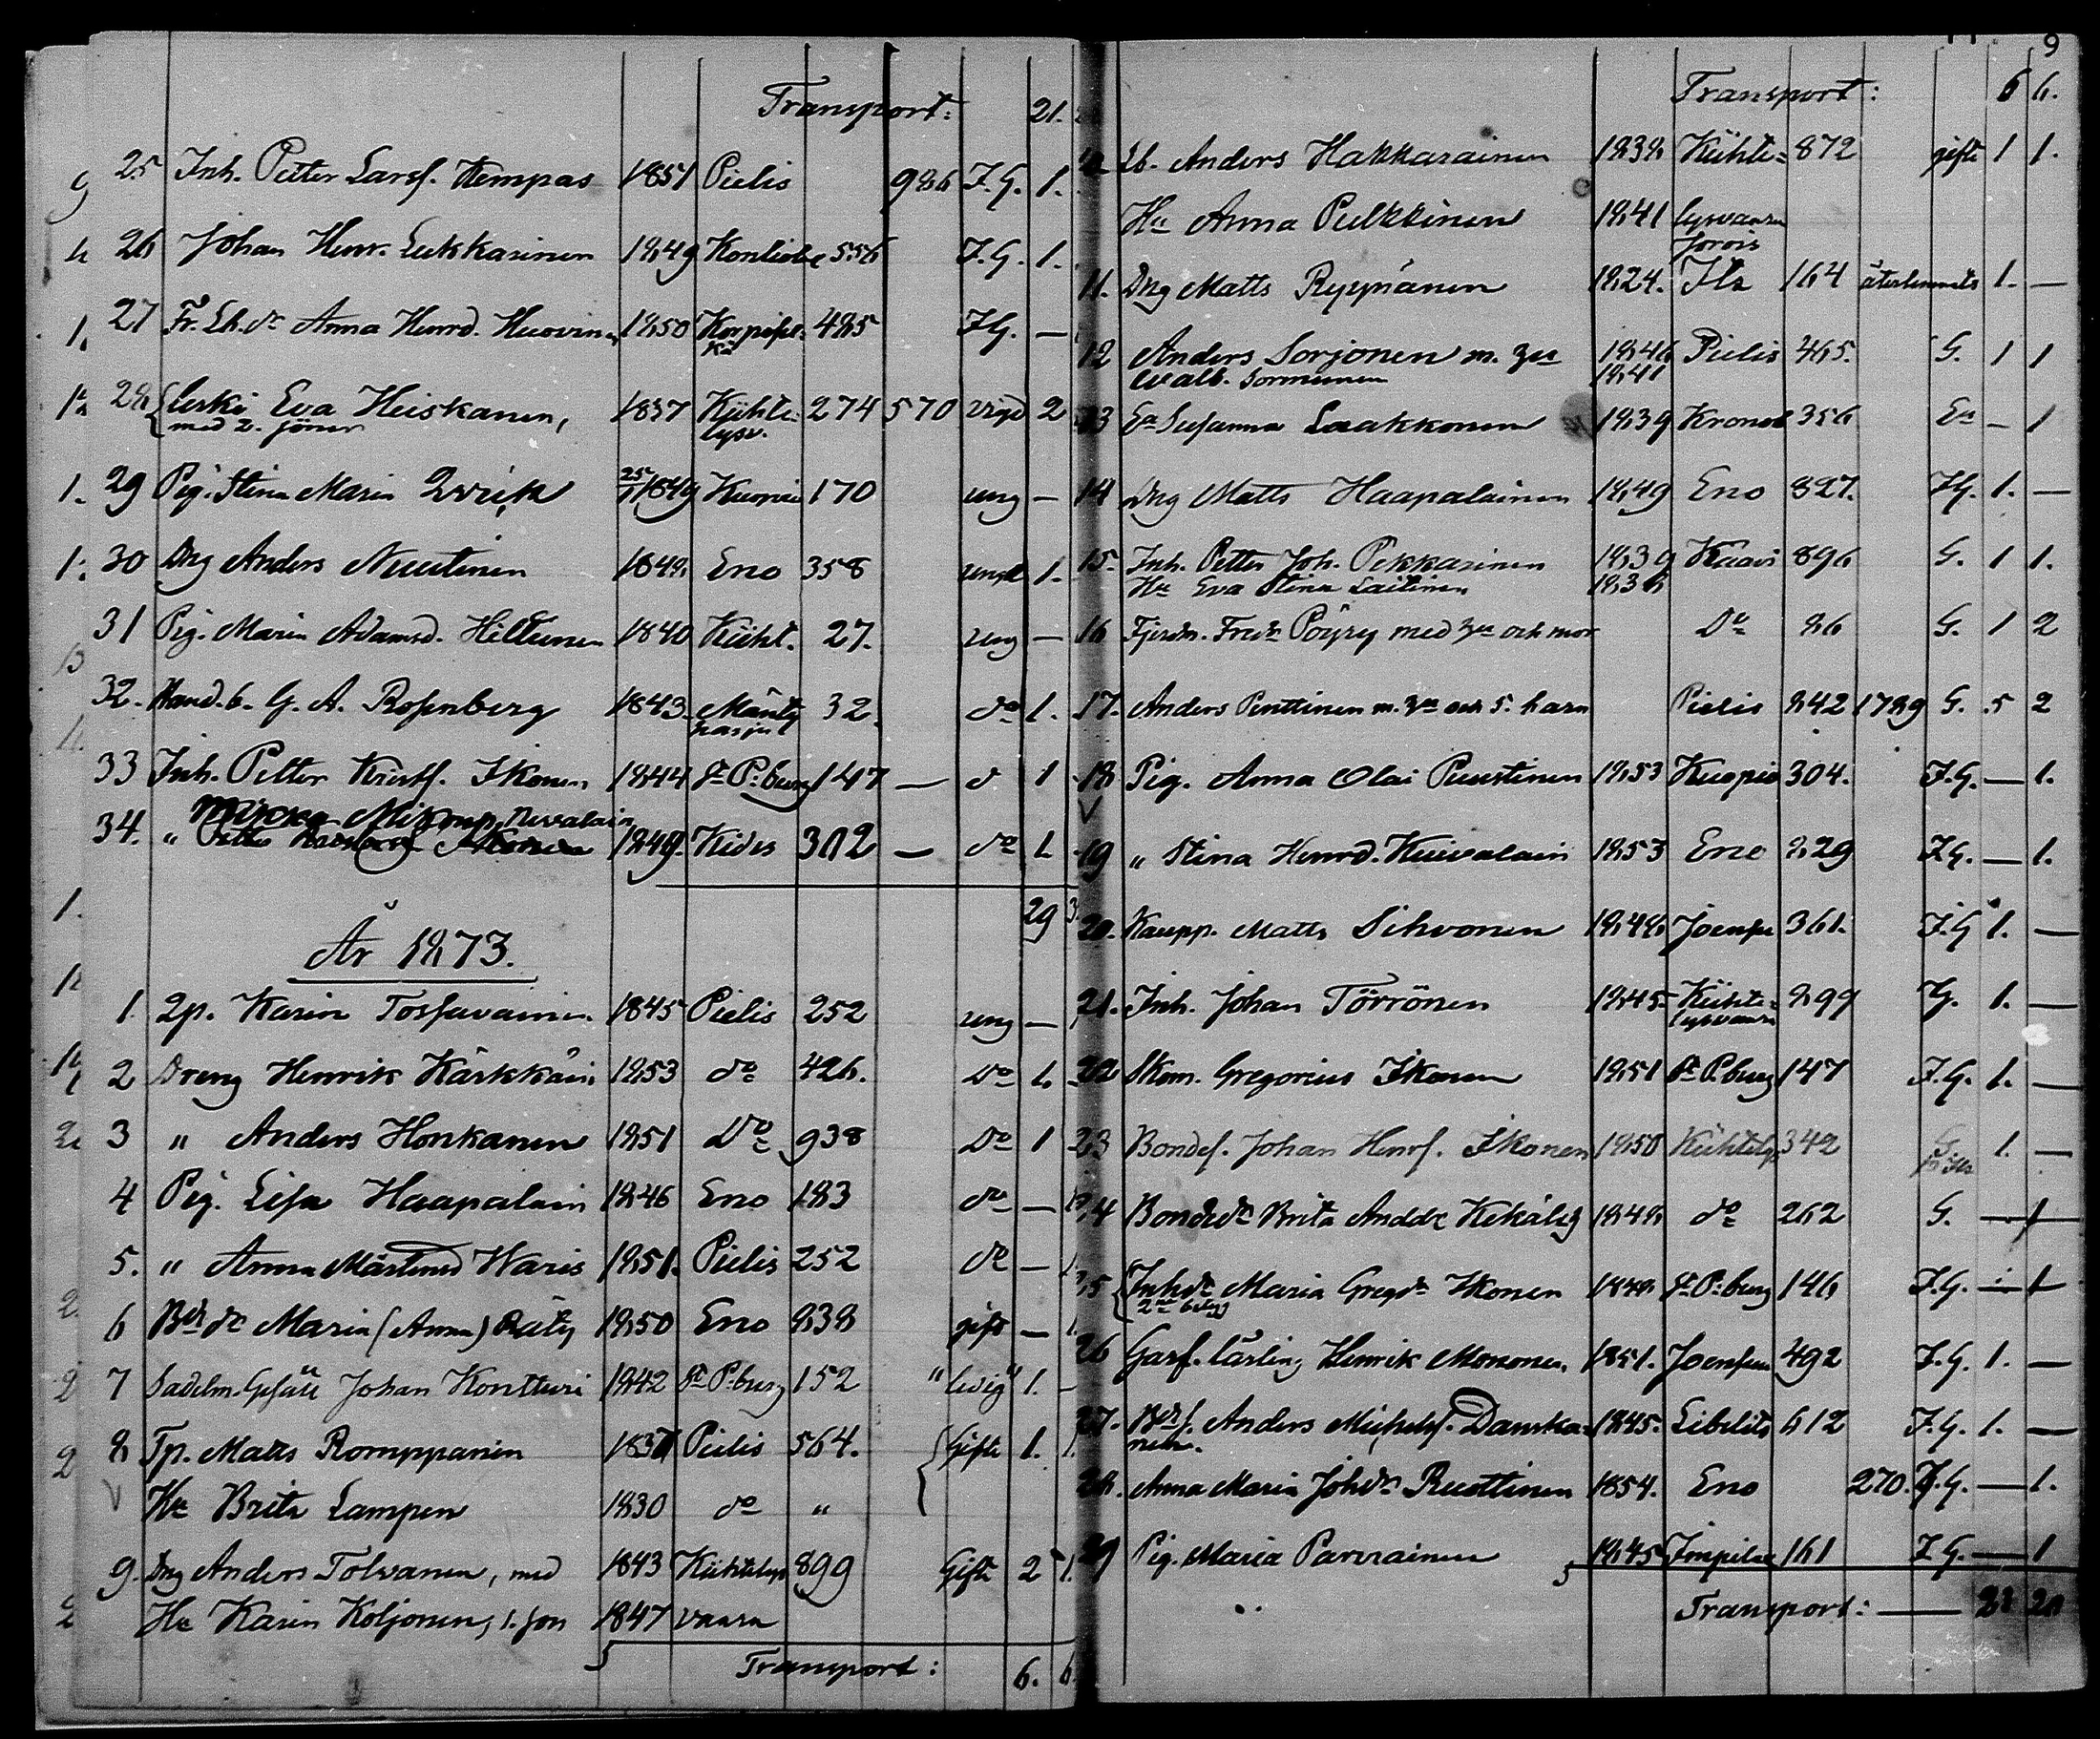 Transport: 21.
25 Inh. Petter Larsf. Kempas 1851 Pielis 986 F.G. 1.
26 Johan Henr. Lukkarinen 1849 Kontiol. 556 F.G. 1.
27 Fr. Lh. dr Anna Henrd. Huovin. 1850 Korpisel. 485 F.G. —
kä
28 Enki Eva Heiskanen, 1837 Kiihte- 274 570 vigd 2
med 2. söner lysv.
29 Pig. Stina Maria Qvick 25/11 1849 Kuopio 170 ung —
30 Dng Anders Nuutinen 1848 Eno 358 ungk 1.
31 Pig. Maria Adamsd. Hiltunen 1840 Kiiht. 27. ung —
32. Hand.b. G. A. Rosenberg 1843. Mänty 32. do 1.
harju
33 Inh. Petter Kristf. Ikonen 1844 St P:burg 147 — do 1
Nevalain
34. " 1849. Kides 302 — do 1.
29 3
År 1873.
1. Karin Tossavainen 1845 Pielis 252 ung —
2 Dreng Henrik Kärkkäin. 1853 do 426. Do 1.
3 " Anders Honkanen 1851 Do 938 Do 1
4 Pig. Lisa Haapalain 1846 Eno 183 do —
5. " Anna Mårtensd Waris 1851. Pielis 252 do —
6 Bd. dr Maria (Anna) Räty 1850 Eno 838 gift —
7 Sadelm. Gesäll Johan Kontturi 1842 St P:burg 152 "ledig" 1. —
8 Tp. Matts Romppanen 1837 Pielis 564. Gifte 1. 1.
Hu Brita Lampen 1830 do "
9. Dng Anders Tolvanen, med 1843 Kiihtelys 899 Gifte 2 1.
Hu Karin Koljonen, 1. son 1847 vaara
Transport: 6. 6
9
Transport: 6 6.
Lb. Anders Hakkarainen 1838 Kiihte= 872 gifte 1 1.
Hu Anna Pulkkinen 1841 lysvaara
Jorois
11. Dng Matts Ryynänen 1824. Ils 164 återlemnats 1. —
12 Anders Sorjonen m. hu 1846 Pielis 465. G. 1 1
Walb. Sormunen 1841
13 Ea Susanna Laakkonen 1839 Kronob 356 Ea — 1
14 Dng Matts Haapalainen 1849 Eno 827. F.G. 1. —
15. Inh. Petter Joh. Pekkarinen 1839 Kaavi 896 G. 1 1.
Hu Eva Stina Laitinen 1836
16 Fjerdm. Fredr Pöyry med hu och mor Do 86 G. 1 2
17. Anders Penttinen m. hu och 5. barn Pielis 842 1789 G. 5 2
18 Pig. Anna Olai Puustinen 1853 Kuopio 304. F.G. — 1.
19 " Stina Henrd. Kuivalain 1853 Eno 829 F.G. — 1.
20. Kaupp. Matts Sihvonen 1848 Joensu 361. F.G 1. —
21. Inh. Johan Törrönen 1845 Kiihte= 899 F.G. 1. —
lysvaara
22 Skom. Gregorius Ikonen 1851 St P.burg 147 F.G. 1. —
23 Bondes. Johan Henrs. Ikonen 1850 Kiihtelys 342 G. 1. —
24 Bonded:r Brita Andd:r Kekäläi 1848 do 262 G. — 1
25 Inhdr Maria Gregdr Ikonen 1848 St P:burg 146 F.G. — 1
26 Garf. lärling Henrik Mononen. 1851. Joensuu 492 F.G. 1. —
27. Bds. Anders Michelsf. Danska= 1845. Libelits 612 F.G. 1. —
nen.
28. Anna Maria Johdr Ruottinen 1854. Eno 270. F.G. — 1.
29 Pig. Maria Parviainen 1845 Impilax 161 F.G. — 1
Transport: — 23 20